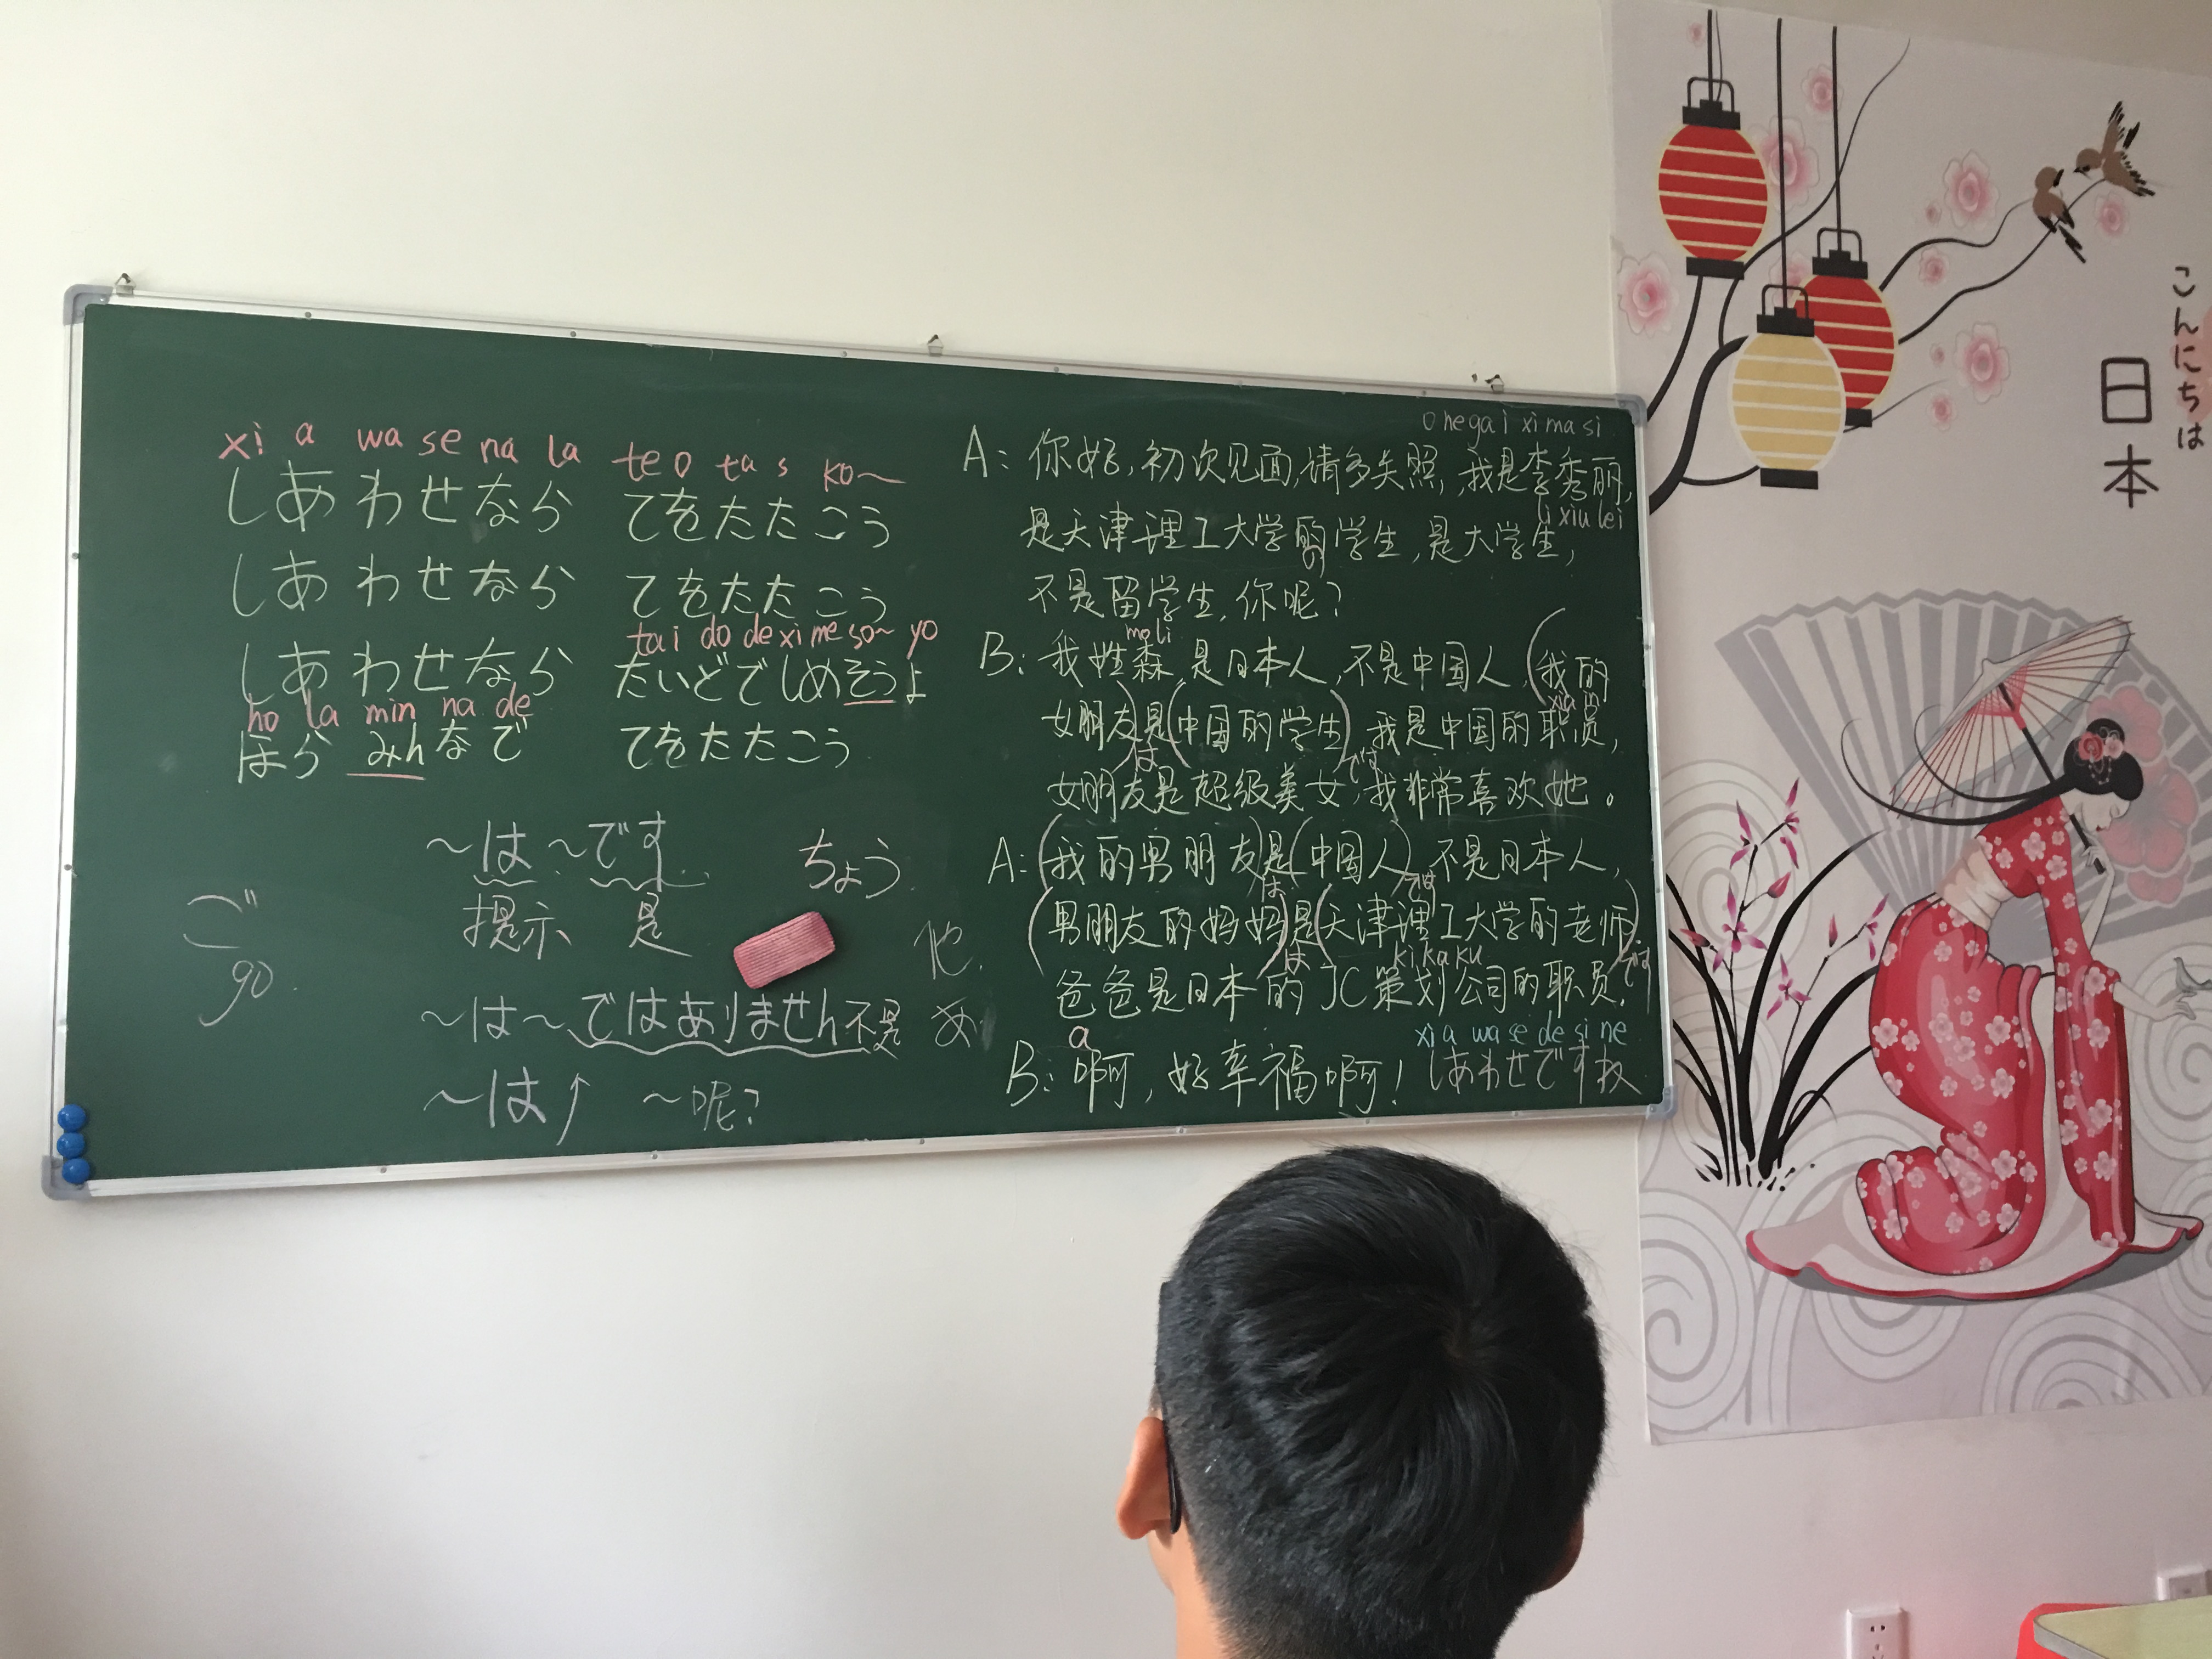 xi a wa se na la te o ta s ko~
しあわせなら てをたたこう
しあわせなら てをたたこう
tai do de xi me so~ yo
しあわせなら たいどでしめそうよ
ho la min na de
ほら みんなで てをたたこう
~は~です
提示 是
ちょう
ご
go
他
~は~ではありません不是
~は↑ ~呢?
o ne ga i xi ma si
A: 你好,初次见面,请多关照,我是李秀丽,
li xiu lei
是天津理工大学的学生,是大学生,
の
不是留学生,你呢?
mo li
B: 我姓森,是日本人,不是中国人,(我的
xia in
女朋友)是(中国的学生),我是中国的职员,
は です
女朋友是超级美女,我非常喜欢她。
A: (我的男朋友)是(中国人),不是日本人,
は では
(男朋友的妈妈)是(天津理工大学的老师)
は です
ki ka ku
爸爸是日本的JC策划公司的职员.
a
xi a wa se de si ne
B: 啊,好幸福啊! しあわせですね
こんにちは
日本